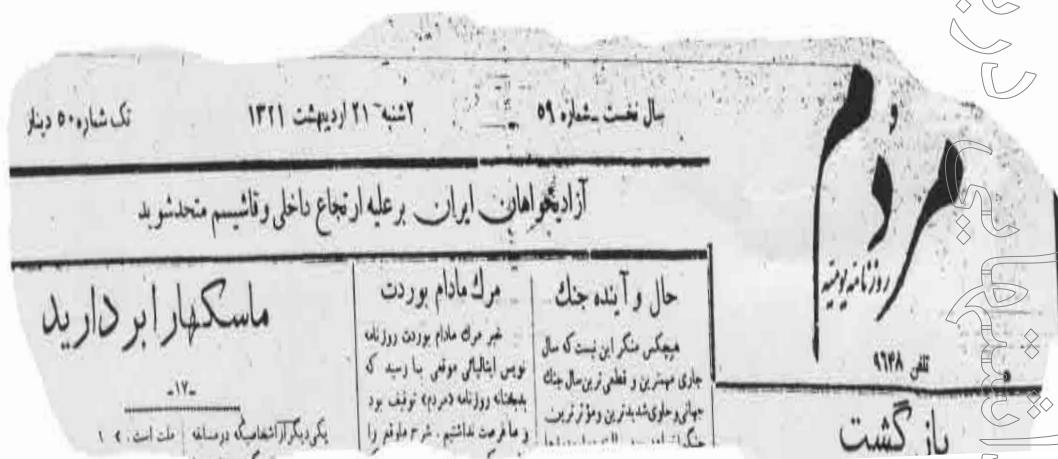 مردم
روزنامه یومیه
تلفن ۹۶۴۸
بازگشت
سال نخست ـ شماره ۵۹
۲شنبه ۲۱ اردیبهشت ۱۳۲۱
تک شماره ۵۰ دینار
آزادیخواهان ایران بر علیه ارتجاع داخلی و فاشیسم متحد شوید
حال و آینده جنك
هیچکس منکر این نیست که سال
جاری مهمترین و قطعی ترین سال جنك
جهانی و حاوی شدیدترین و مؤثرترین
مرك مادام بوردت
خبر مرك مادام بوردت روزنامه
نویس ایتالیائی موقعی بما رسید که
بدبختانه روزنامه «مردم» توقیف بود
و ما فرصت نداشتیم . شرح ماوقع را
ماسکهارا بردارید
ـ۱۷ـ
یکی دیگر از اشخاصیکه در مسابقه
ملت است .